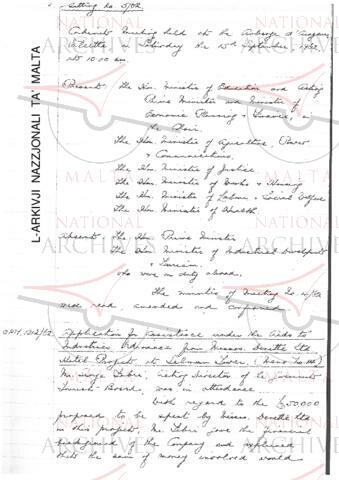 Sitting No. 5/62
Cabinet Meeting held at the Auberge d'Aragon,
Valletta, on Saturday the 15th September, 1962,
at 10.00 am.
Present: The Hon. Minister of Education and Acting
Prime Minister and Minister of
Economic Planning & Finance, in
the Chair.
The Hon. Minister of Agriculture, Power
& Communications.
The Hon. Minister of Justice
The Hon. Minister of Works & Housing
The Hon. Minister of Labour & Social Welfare
The Hon. Minister of Health
Absent: The Hon. Prime Minister
The Hon. Minister of Industrial Development
& Tourism,
who were on duty abroad.
The minutes of Meeting No. 4/62
were read, amended and confirmed
OPM. 1212/62
Application for Assistance under the Aids to
Industries Ordinance from Messrs Doretta Ltd
Hotel Project at Selmun
Mr. Acting Director of
Tourist Board, was in attendance.
With regard to the £50,000
proposed to be spent by Messrs. Doretta Ltd
in this project, Mr. gave the financial
background of the Company and explained
that the sum of money involved would
L-ARKIVJI NAZZJONALI TA' MALTA
NATIONAL
ARCHIVES
MALTA